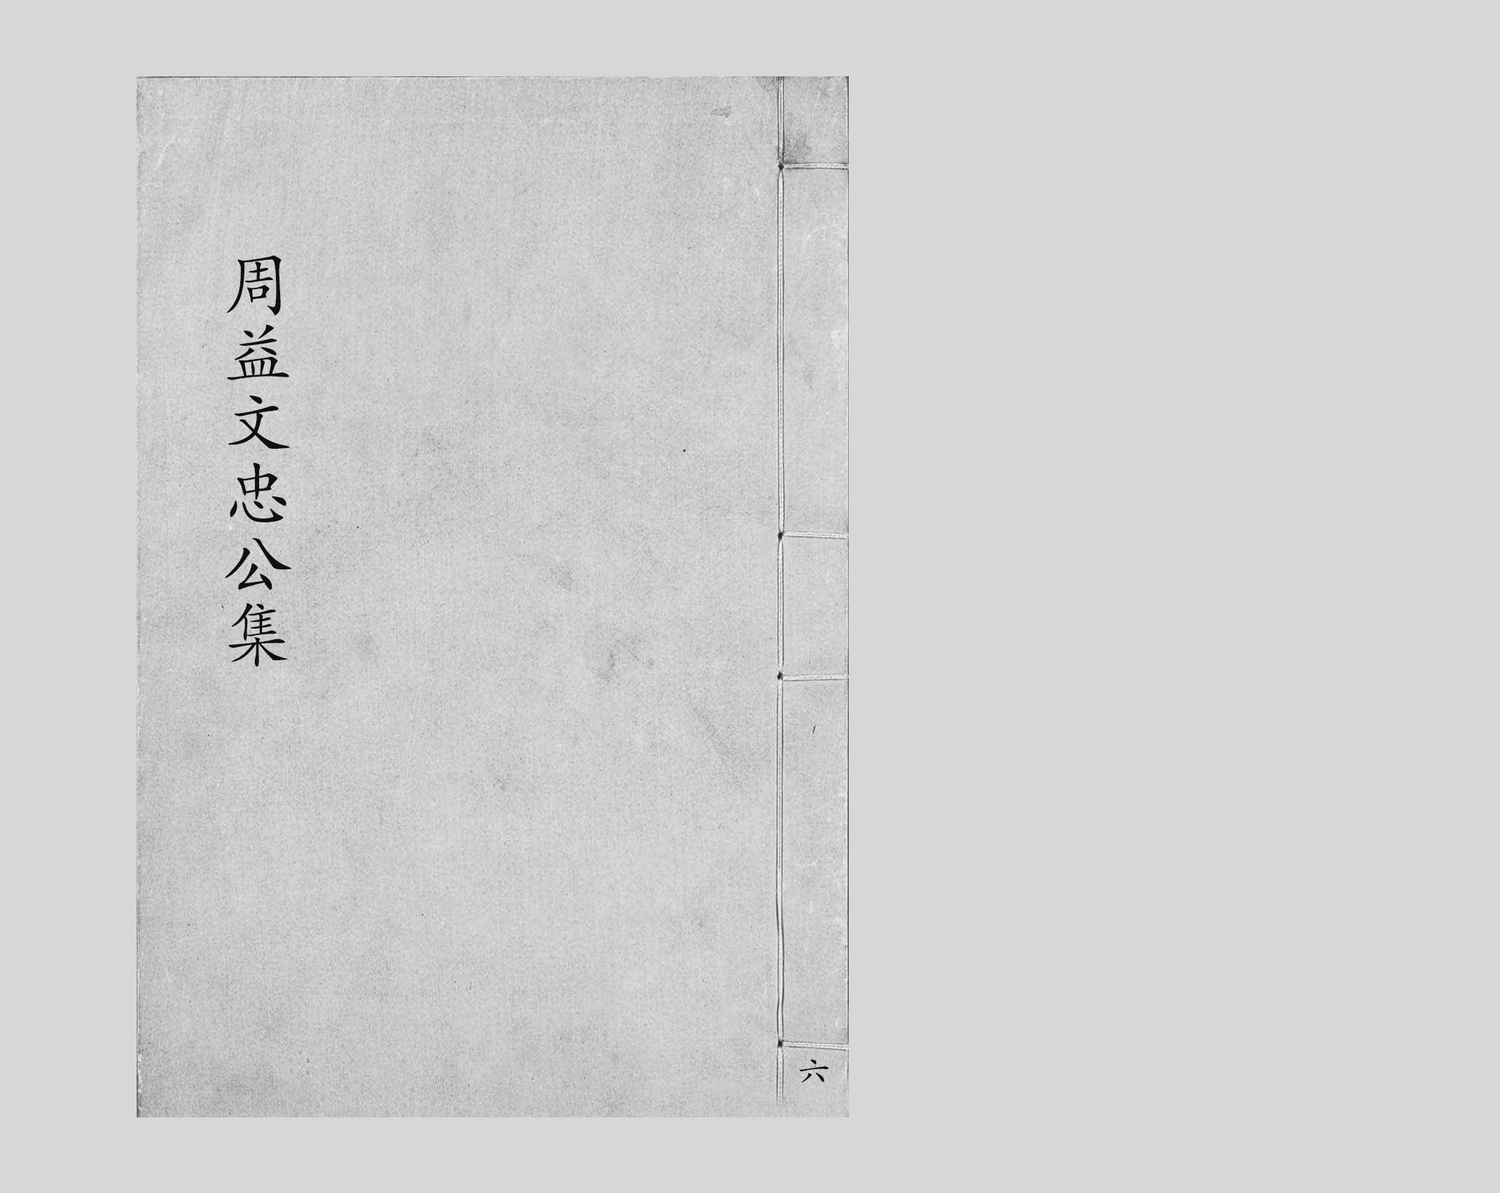 周益文忠公集
六